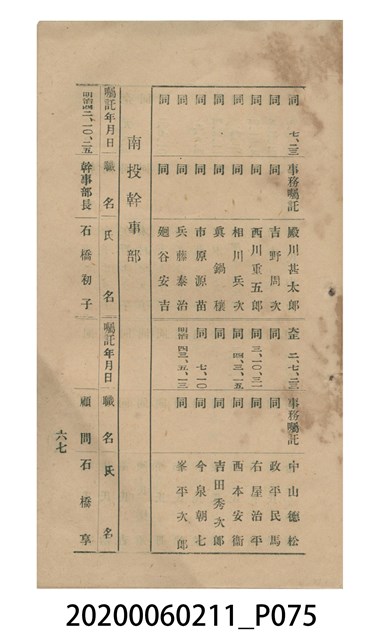 同 七、二三 事務囑託 殿川甚太郎 大正 二、七、二三 事務囑託 中山德松
同 同 吉野周次 同 同 政平民馬
同 同 西川重五郎 同 三、一〇、三一 同 右屋治平
同 同 相川兵次 同 四、三、一五 同 西本安衞
同 同 眞鍋穰 同 同 吉田秀次郎
同 同 市原源苗 同 七、一〇 同 今泉朝七
同 同 兵藤泰治 明治 四三、五、一三 同 峯平次郎
同 同 廻谷安吉
南投幹事部
囑託年月日 職名 氏名 囑託年月日 職名 氏名
明治四二、一〇、二五 幹事部長 石橋初子 顧問 石橋享
六七
20200060211_P075